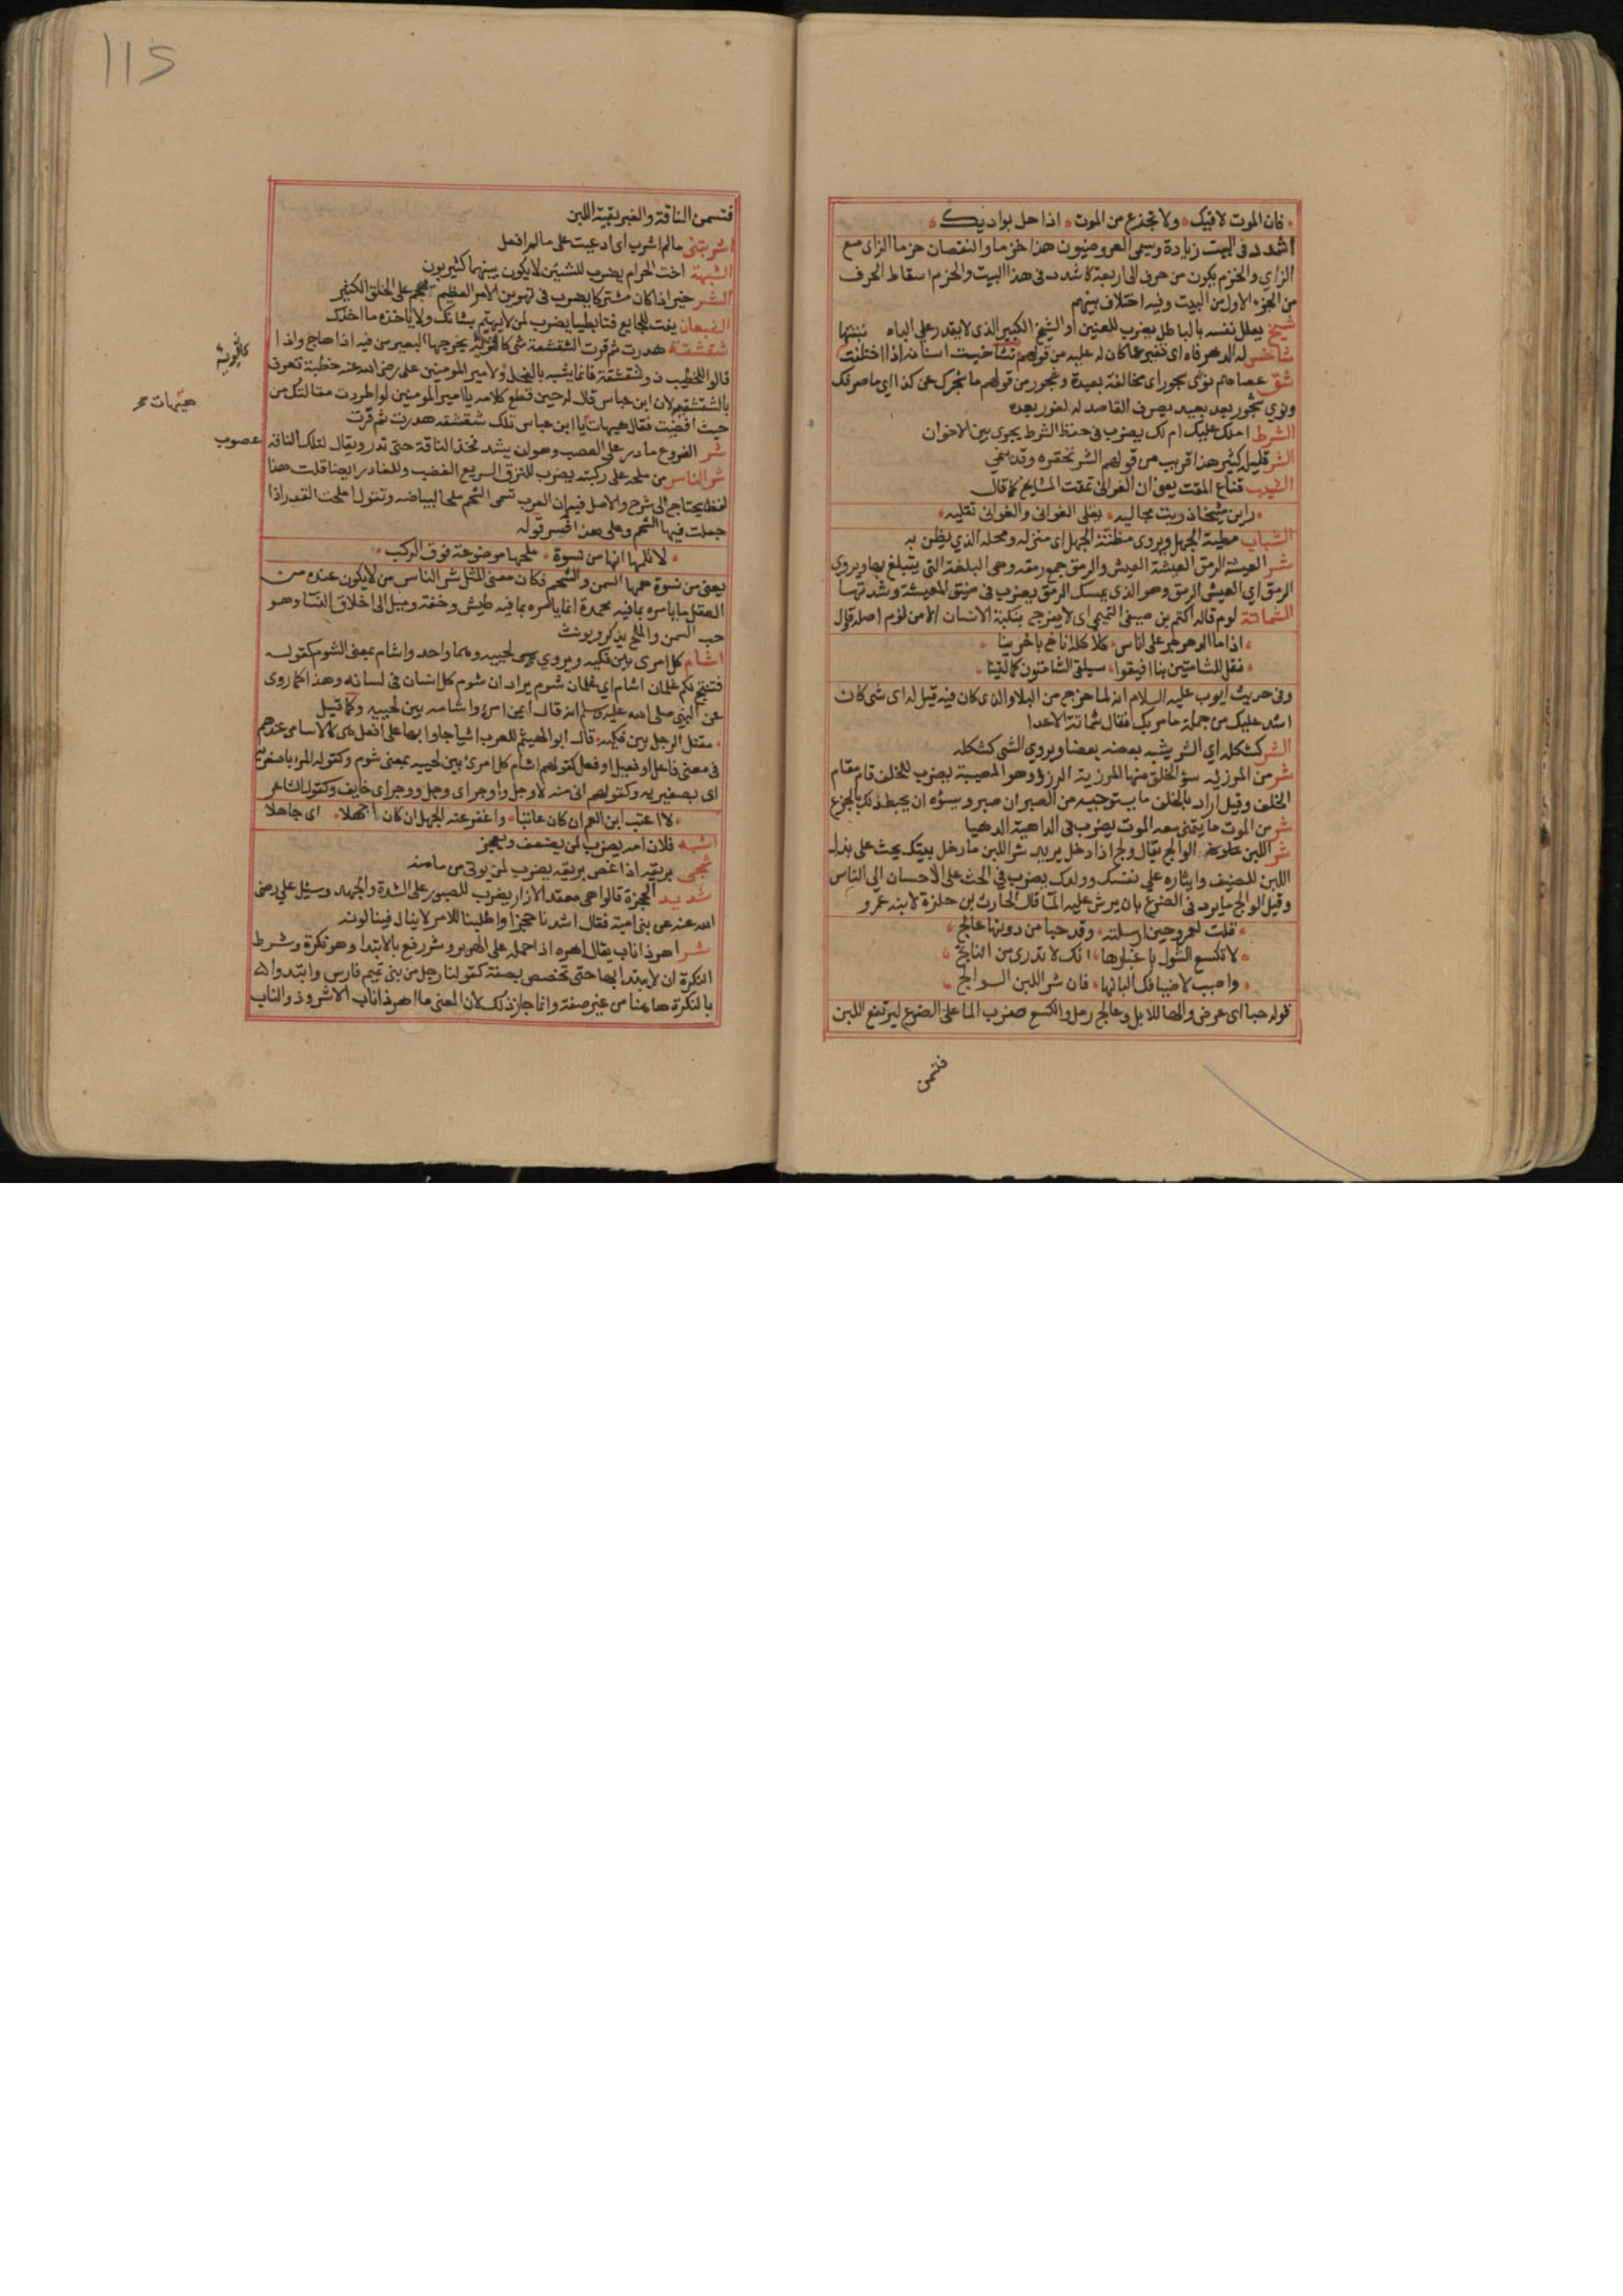 فان الموت لاقيك ولا تجزع من الموت اذا حل بواديك
اشدد في البيت زيادة ويسمى العروضيون هذا خزما والنقصان خرما الزاى مع
الزاي والخزم يكون من حرف الى اربعة كاشدد في هذا البيت والخرم اسقاط الحرف
من الجزء الاول من البيت وفيه اختلاف بينهم
شيخ يعلل نفسه بالباطل يضرب للعنين او الشيخ الكبير الذى لا يقدر على الباه
شاخس له الدهر فاه اى تغير عما كان له عليه من قولهم تشاخست اسنانه اذا اختلفت
شق عصاهم نوى بجور اى مخالفة بعيدة
ونوي بعد بعيد يصرف القاصد له لغور بعده
الشرط املك عليك ام لك يضرب في حفظ الشرط يجرى بين الاخوان
الشر قليله كثير هذا قريب من قولهم الشر تحقره وقد ينمي
الشيب قناع المقت يعنى ان الغوانى تمقت المشايخ كما قال
راين شيخا ذريت مجاليه يقلى الغوانى والغوانى تقليه
الشباب مطية الجهل ويروى مظنة الجهل اى منزله ومحله الذي يظن به
شر العيشة الرمق العيشة العيش والرمق جمع رمقه وهى البلغة التى يتبلغ بها ويروى
الرمق اي العيش الرمق وهو الذى يمسك الرمق يضرب في ضيق المعيشة وشدتها
الشماتة لوم قاله اكثم بن صيفى التميمى اى لا يفرح بنكبة الانسان الا من لؤم اصله قال
اذا ما الدهر جر على اناس كلاكله اناخ باخرينا
فقل للشامتين بنا افيقوا سيلقى الشامتون كما لقينا
وفى حديث ايوب عليه السلام انه لما خرج من البلاء الذى كان فيه قيل له اى شى كان
اشد عليك من جملة ما مر بك فقال شماتة الاعدا
الشر كشكله اي الشر يشبه بعضه بعضا ويروي الشى كشكله
شر من المرزئة سؤ الخلف منها المرزية الرزؤ وهو المصيبة يضرب للخلف قام مقام
الخلف وقيل اراد بالخلف ما يستوجبه من الصبر ان صبر وسؤه ان يحبط ذلك بالجزع
شر من الموت ما يتمنى معه الموت يضرب فى الداهية الدهيا
شر اللبن الوالج يقال ولج اذا دخل يريد شر اللبن ما دخل بيتك يحث على بذل
اللبن للضيف وايثاره على نفسك وولدك يضرب في الحث على الاحسان الى الناس
وقيل الوالج ما يرد فى الضرع بان يرش عليه الما قال الحارث بن حلزة لابنه عمرو
قلت لعمرو حين ارسلته وقد حبا من دونها عالج
لا تكسع الشول باغبارها انك لا تدرى من الناتج
واصبب لاضيافك البانها فان شر اللبن الوالج
قوله حبا اى عرض والها للابل وعالج رمل والكسع ضرب الما على الضرع ليرتفع اللبن
فتسمن
115
فتسمن الناقة والغبر بقية اللبن
اشربتنى مالم اشرب اى ادعيت على مالم افعل
الشبهة اخت الحرام يضرب للشيئين لا يكون بينهما كثير بون
الشر خير اذا كان مشتركا يضرب فى تهوين الامر العظيم يهجم على الخلق الكثير
الشبعان يفت للجايع فتا بطيا يضرب لمن لا يهتم بشانك ولا ياخذه ما اخذك
شقشقة هدرت ثم قرت الشقشقة شى كالرية يخرجها البعير من فيه اذا هاج واذا
قالوا للخطيب ذو شقشقة فانما يشبه بالفحل ولامير المومنين على رضى الله عنه خطبة تعرف
بالشقشقية لان ابن عباس قال له حين قطع كلامه يا امير المومنين لو اطردت مقالتك من
حيث افضيت فقال هيهات يا ابن عباس تلك شقشقه هدرت ثم قرت
شر الضروع ما در على العصب وهو ان يشد فخذ الناقة حتى تدر ويقال لتلك الناقه عصوب
شر الناس من ملحه على ركبته يضرب للنزق السريع الغضب وللغادر ايضا قلت هذا
لفظ يحتاج الى شرح والاصل فيه ان العرب تسمى الشحم ملحا لبياضه وتقول املحت القدر اذا
جعلت فيها الشحم وعلى هذا فسر قوله
لا تلمها انها من نسوة ملحها موضوعة فوق الركب
يعنى من نسوة همها السمن والشحم فكان معنى المثل شر الناس من لا يكون عنده من
العقل ما يامره بما فيه محمدة انما يامره بما فيه طيش وخفة وميل الى اخلاق النسا وهو
حب السمن والملح يذكر ويونث
اشام كل امرى بين فكيه ويروي لحييه وهما واحد واشام بمعنى الشوم كقوله
فتنتج لكم غلمان اشام اي غلمان شوم يراد ان شوم كل انسان فى لسانه وهذا كما روى
عن النبى صلى الله عليه وسلم انه قال ايمن امرئ واشامه بين لحييه وكما قيل
مقتل الرجل بين فكيه قال ابو الهيثم للعرب اشيا جاوا بها على افعل هى كالاسامى عندهم
فى معنى فاعل او فعيل او فعل كقولهم اشام كل امرئ بين لحييه بمعنى شوم وكقوله المرء باصغريه
اى بصغيريه وكقولهم انى منه لاوجل واوجر اى وجل ووجر اى خايف وكقول الشاعر
لا اعتب ابن العم ان كان عاتبا واغفر عنه الجهل ان كان اجهلا اى جاهلا
اشبه فلان امه يضرب لمن يضعف ويعجز
شجى بريقه اذا غص بريقه يضرب لمن يوتى من مامنه
شديد الحجزة قالوا هى معقد الازار يضرب للصبور على الشدة والجهد وسئل علي رضى
الله عنه عن بنى امية فقال اشدنا حجزا واطلبنا للامر لا ينال فينالونه
شر اهر ذا ناب يقال اهره اذا حمله على الهرير وشر رفع بالابتدا وهو نكرة وشرط
النكرة ان لا يبتدا بها حتى تخصص بصفة كقولنا رجل من بنى تميم فارس وابتدوا
بالنكرة هاهنا من غير صفة وانما جاز ذلك لان المعنى ما اهر ذا ناب الا شر وذو الناب
هيهات